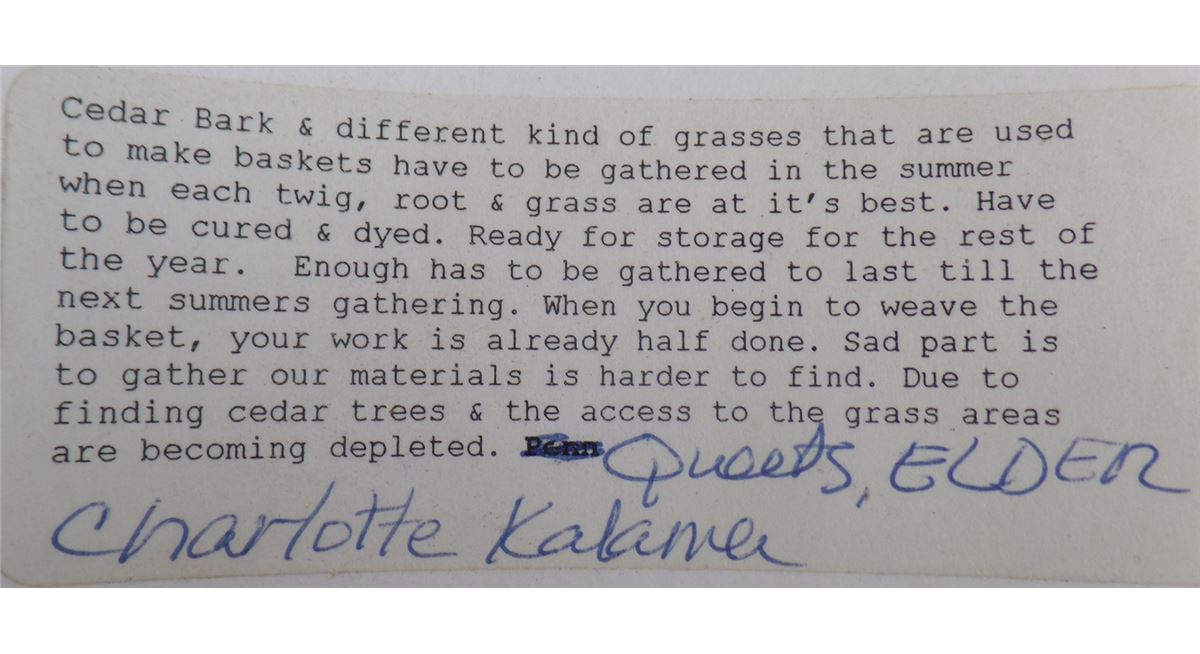 Cedar Bark & different kind of grasses that are used
to make baskets have to be gathered in the summer
when each twig, root & grass are at it's best. Have
to be cured & dyed. Ready for storage for the rest of
the year.  Enough has to be gathered to last till the
next summers gathering. When you begin to weave the
basket, your work is already half done. Sad part is
to gather our materials is harder to find. Due to
finding cedar trees & the access to the grass areas
are becoming depleted. Queets, ELDER
Charlotte Kalama